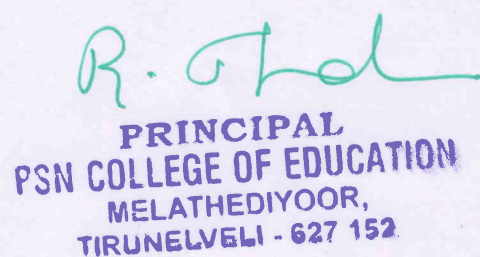 R.
PRINCIPAL
PSN COLLEGE OF EDUCATION
MELATHEDIYOOR,
TIRUNELVELI - 627 152